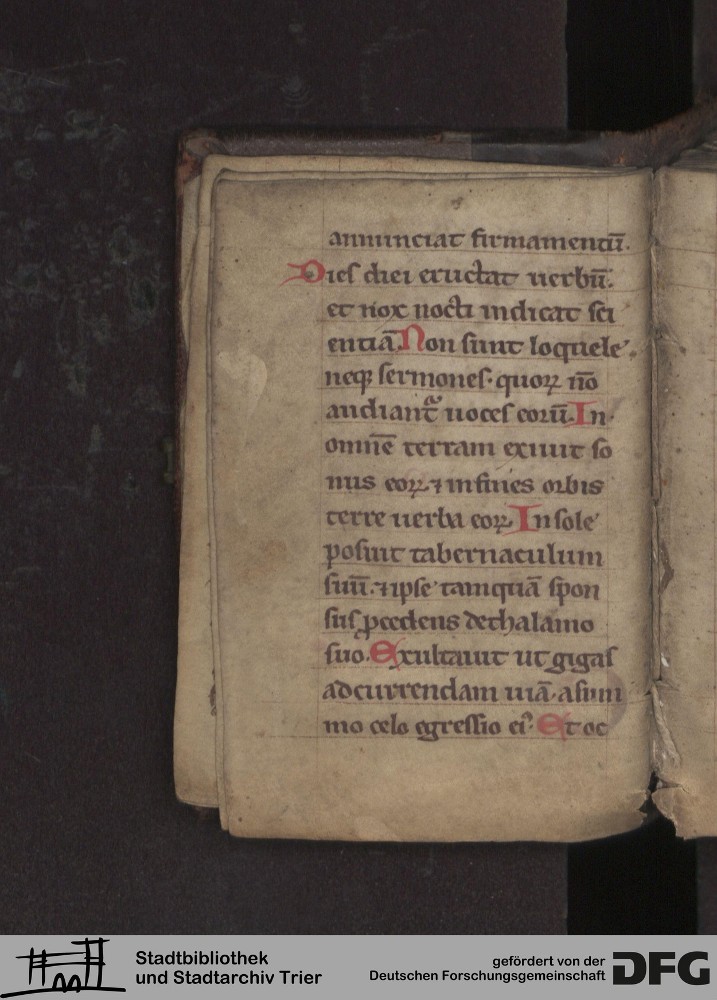 annunciat firmamentū.
Dies diei eructat uerbū.
et nox nocti indicat sci
entiā. Non sunt loquele
neq; sermones· quoꝝ nō
audiantᷣ uoces eorū. In
omnē terram exiuit so
nus eoꝝ· ⁊ infines orbis
terre uerba eoꝝ. In sole
posuit tabernaculum
suū· ⁊ ipse tamquā spon
sus ꝓcedens dethalamo
suo. Exultauit ut gigas
adcurrendam uiā· asum
mo celo egressio eiꝰ. Et oc
Stadtbibliothek
und Stadtarchiv Trier
gefördert von der
Deutschen Forschungsgemeinschaft
DFG